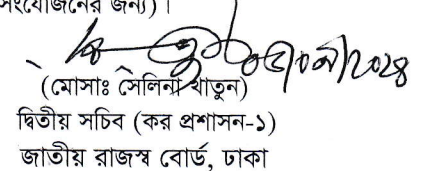 সংযোজনের জন্য)।
(মোসাঃ সেলিনা খাতুন)
দ্বিতীয় সচিব (কর প্রশাসন-১)
জাতীয় রাজস্ব বোর্ড, ঢাকা